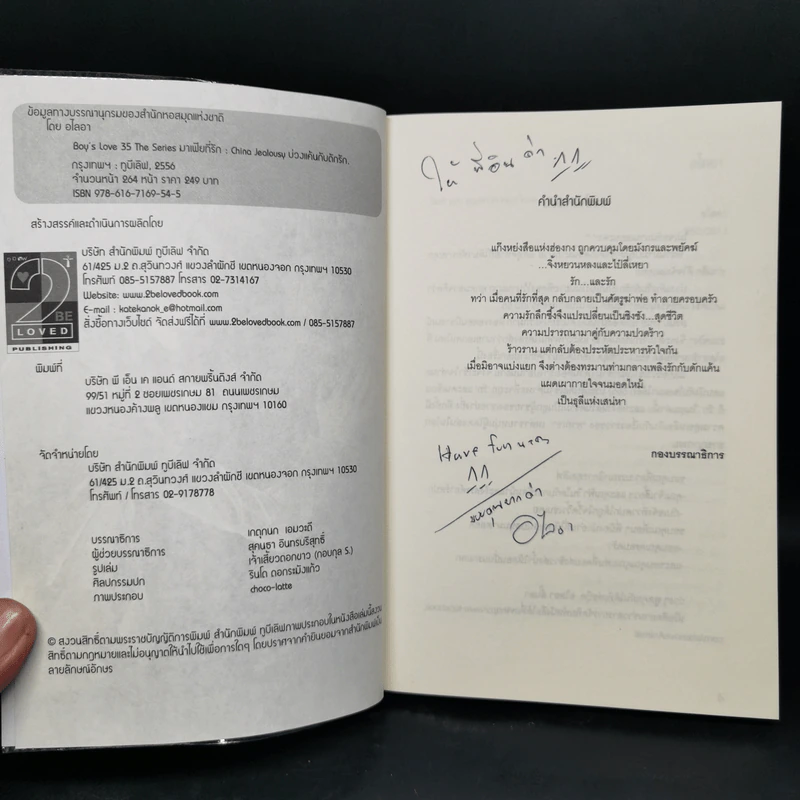 ข้อมูลทางบรรณานุกรมของสำนักหอสมุดแห่งชาติ
โดย อไลอา
Boy's Love 35 The Series มาเฟียที่รัก : China Jealousy บ่วงแค้นกับดักรัก.
กรุงเทพฯ : ทูบีเลิฟ, 2556
จำนวนหน้า 264 หน้า ราคา 249 บาท
ISBN 978-616-7169-54-5
สร้างสรรค์และดำเนินการผลิตโดย
2
BE
LOVED
PUBLISHING
บริษัท สำนักพิมพ์ ทูบีเลิฟ จำกัด
61/425 ม.2 ถ.สุวินทวงศ์ แขวงลำผักชี เขตหนองจอก กรุงเทพฯ 10530
โทรศัพท์ 085-5157887 โทรสาร 02-7314167
Website: www.2belovedbook.com
E-mail : katekanok_e@hotmail.com
สั่งซื้อทางเว็บไซต์ จัดส่งฟรีได้ที่ www.2belovedbook.com / 085-5157887
พิมพ์ที่
บริษัท พี เอ็น เค แอนด์ สกายพริ้นติงส์ จำกัด
99/51 หมู่ที่ 2 ซอยเพชรเกษม 81 ถนนเพชรเกษม
แขวงหนองค้างพลู เขตหนองแขม กรุงเทพฯ 10160
จัดจำหน่ายโดย
บริษัท สำนักพิมพ์ ทูบีเลิฟ จำกัด
61/425 ม.2 ถ.สุวินทวงศ์ แขวงลำผักชี เขตหนองจอก กรุงเทพฯ 10530
โทรศัพท์ / โทรสาร 02-9178778
บรรณาธิการ เกตุกนก เอมวะดี
ผู้ช่วยบรรณาธิการ สุคนธา อินทรบริสุทธิ์
รูปเล่ม เจ้าเสี้ยวดอกขาว (กอบกุล ร.)
ศิลปกรรมปก รินโด ดอกระฆังแก้ว
ภาพประกอบ choco-latte
© สงวนสิทธิ์ตามพระราชบัญญัติการพิมพ์ สำนักพิมพ์ ทูบีเลิฟภาพประกอบในหนังสือเล่มนี้สงวน
สิทธิ์ตามกฎหมายและไม่อนุญาตให้นำไปใช้เพื่อการใดๆ โดยปราศจากคำยินยอมจากสำนักพิมพ์เป็น
ลายลักษณ์อักษร
ให้ พี่อิน ค่า ^^
คำนำสำนักพิมพ์
แก๊งหย่งสือแห่งฮ่องกง ถูกควบคุมโดยมังกรและพยัคฆ์
...จิ้งหยวนหลงและไป๋ลี่เหยา
รัก...และรัก
ทว่า เมื่อคนที่รักที่สุด กลับกลายเป็นศัตรูฆ่าพ่อ ทำลายครอบครัว
ความรักลึกซึ้งจึงแปรเปลี่ยนเป็นชิงชัง...สุดชีวิต
ความปรารถนามาคู่กับความปวดร้าว
ร้าวราน แต่กลับต้องประหัตประหารหัวใจกัน
เมื่อมิอาจแบ่งแยก จึงต่างต้องทรมานท่ามกลางเพลิงรักกับดักแค้น
แผดเผากายใจจนมอดไหม้
เป็นธุลีแห่งเสน่หา
กองบรรณาธิการ
Have fun นะคะ
^^
ขอบคุณมากค่า
อไลอา